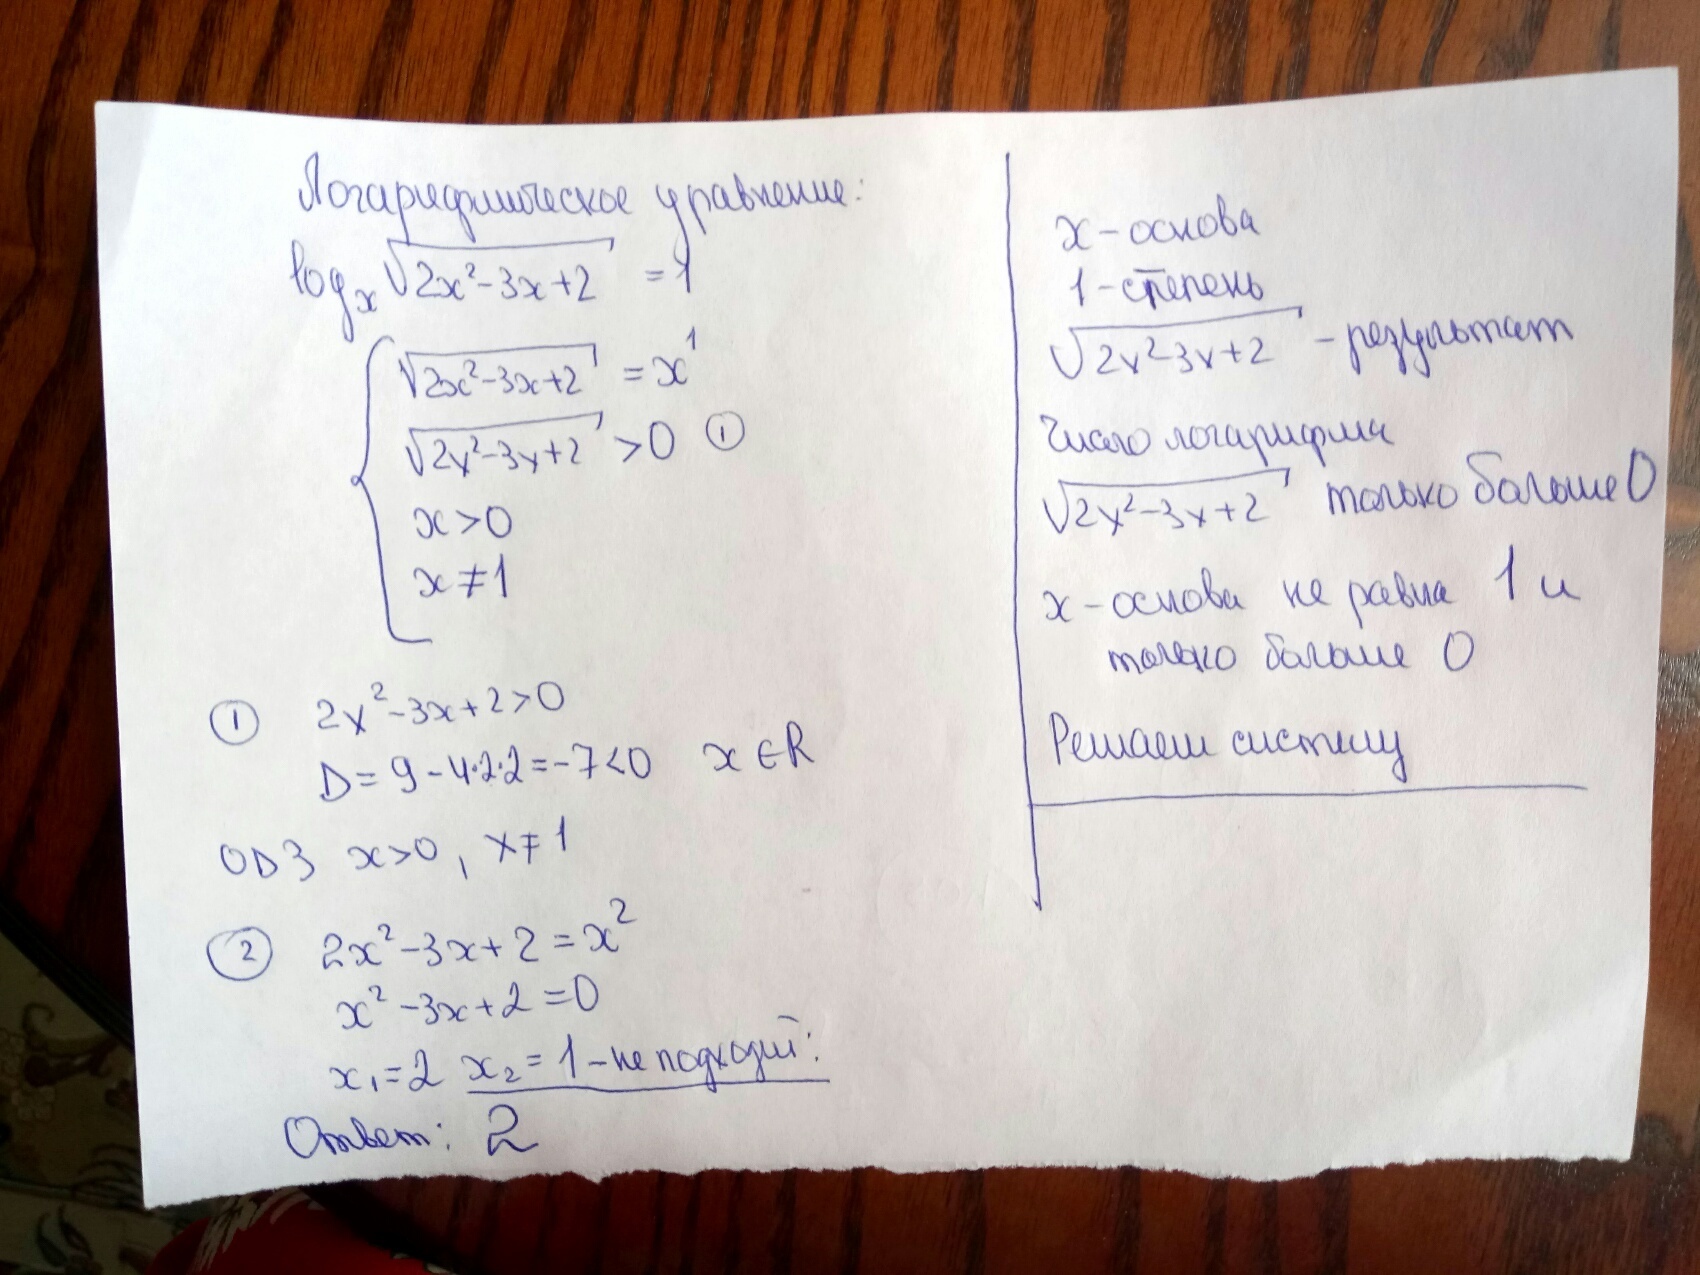 Логарифмическое уравнение:
logₓ √(2x²-3x+2) = 1
√(2x²-3x+2) = x¹
√(2x²-3x+2) > 0 ①
x > 0
x ≠ 1
① 2x²-3x+2>0
D = 9-4·2·2=-7<0 x ∈ R
ОДЗ x>0, x≠1
② 2x²-3x+2=x²
x²-3x+2=0
x₁=2 x₂=1-не подходит:
Ответ: 2
x-основа
1-степень
√(2x²-3x+2) - результат
Число логарифма
√(2x²-3x+2) только больше 0
x-основа не равна 1 и
только больше 0
Решаем систему